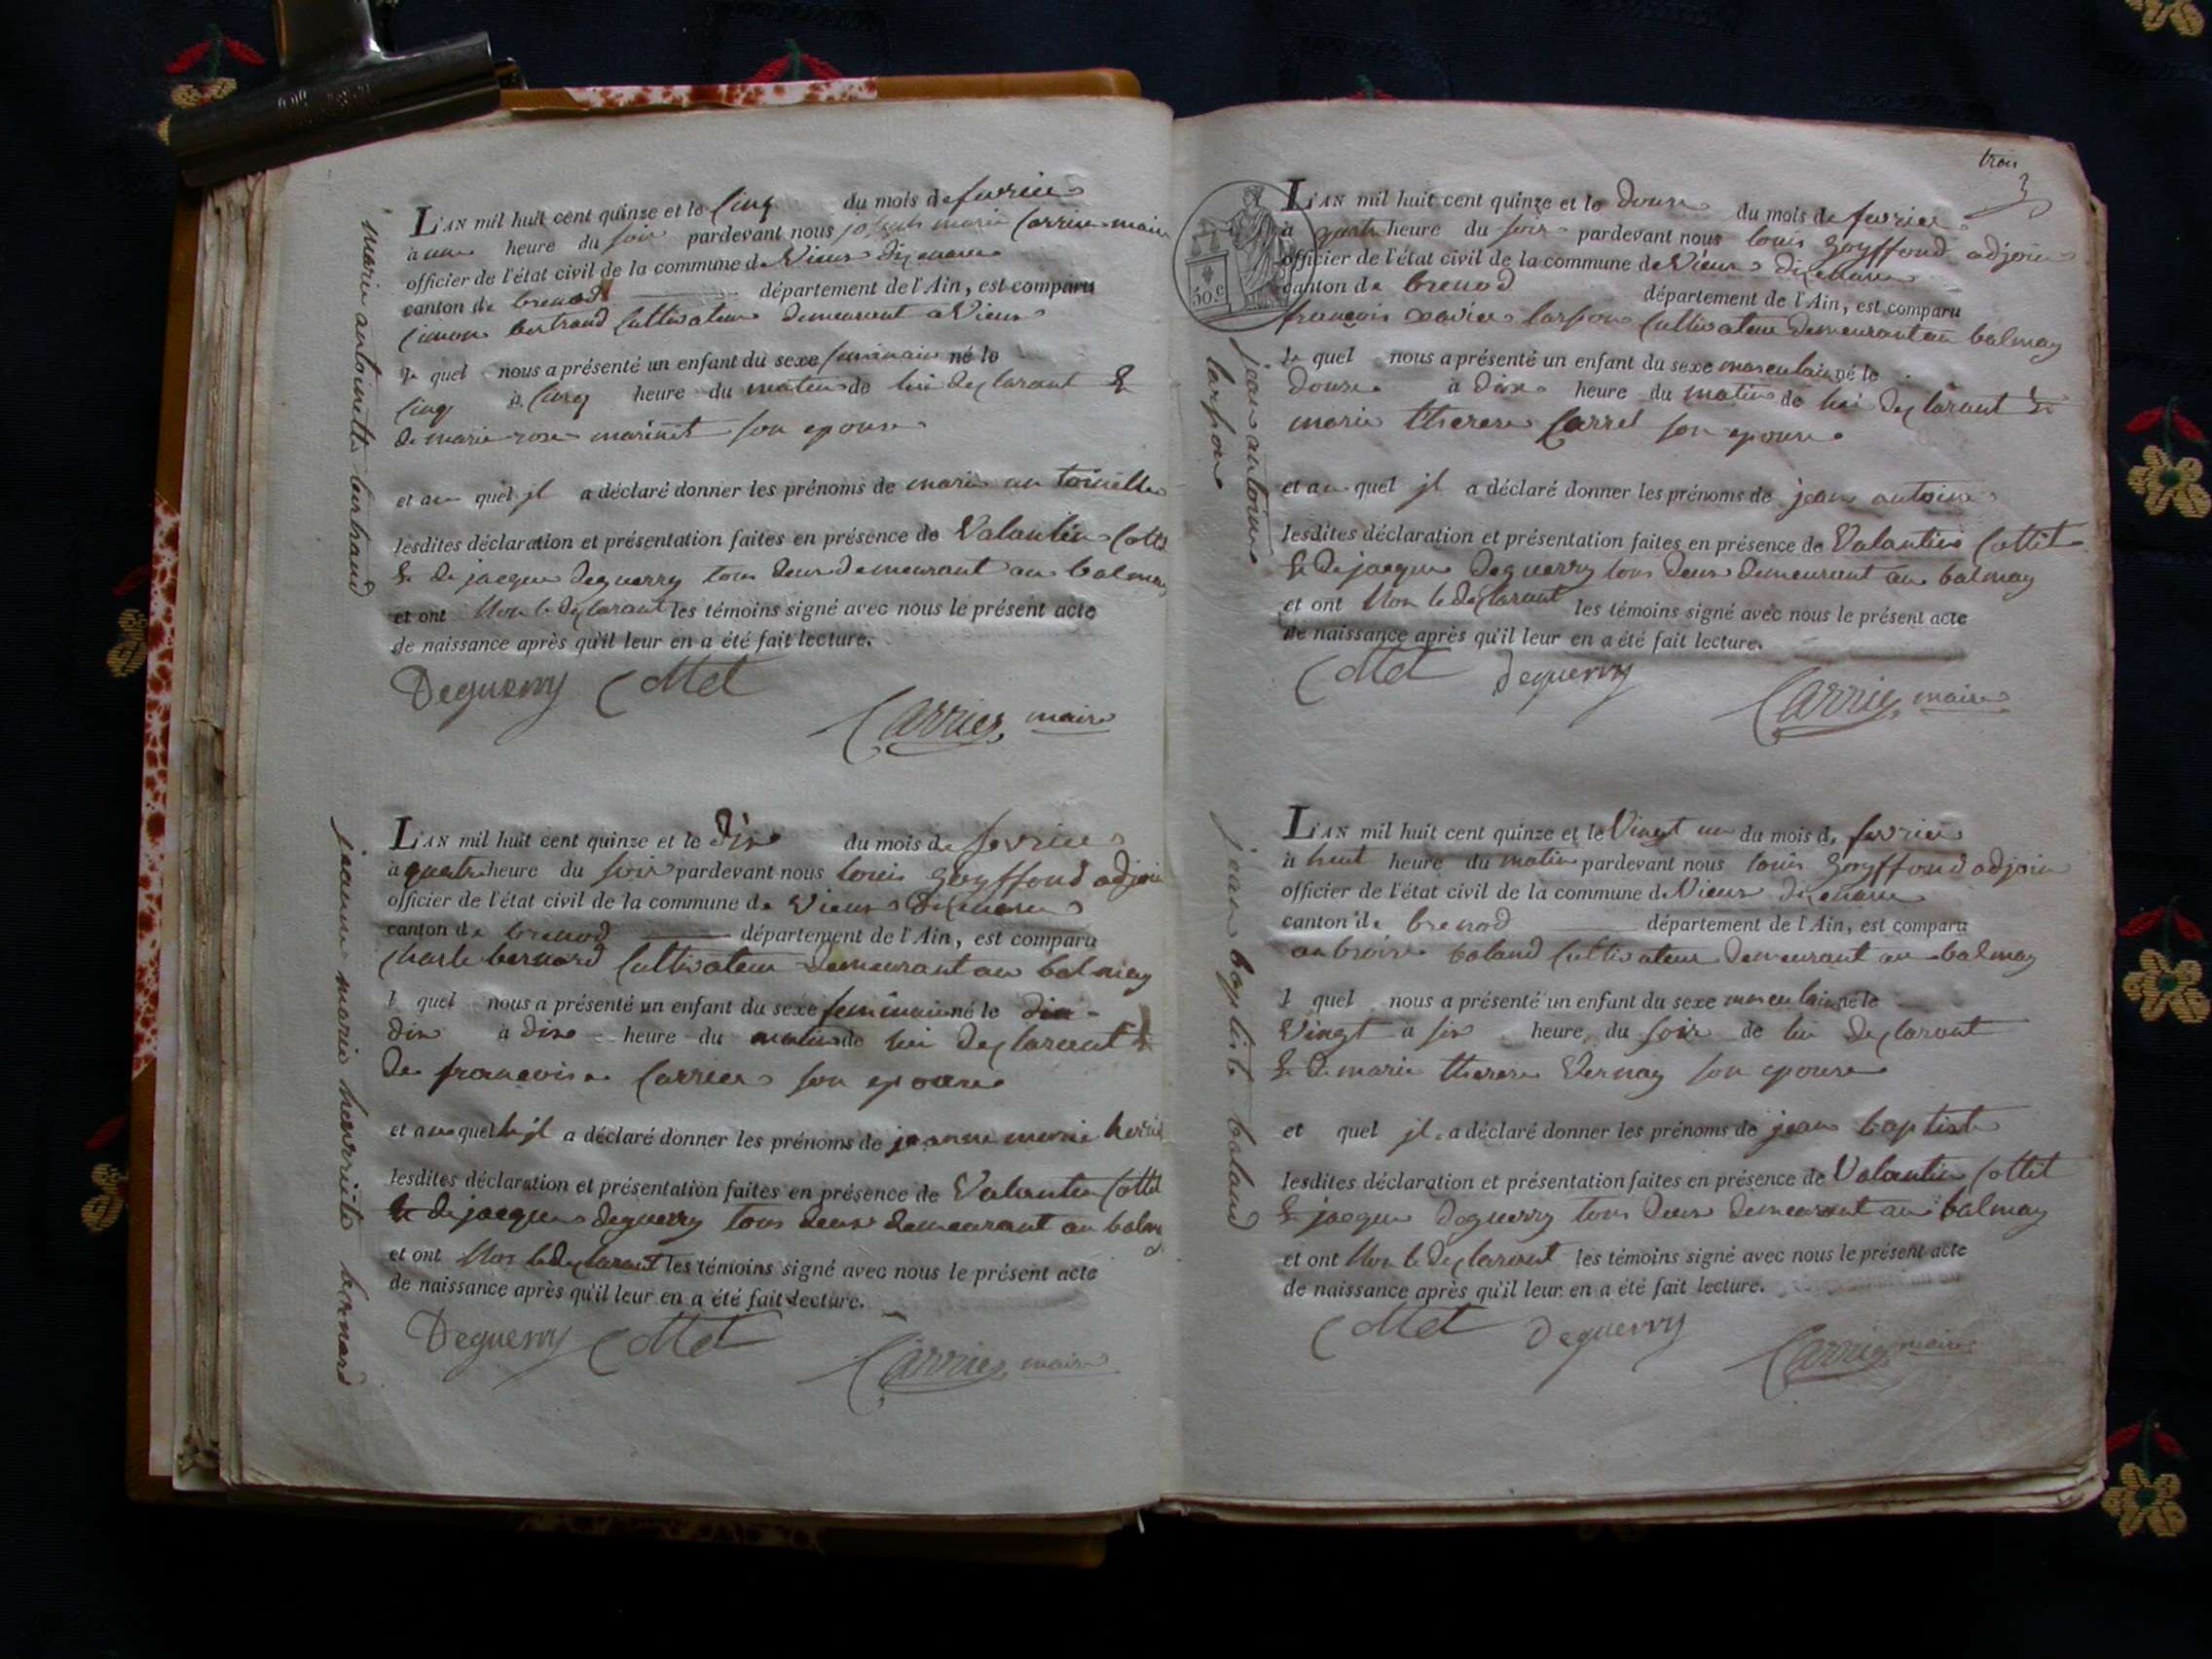 marie antoinette bertrand
L'AN mil huit cent quinze et le cinq du mois de fevrier
à une heure du soir pardevant nous joseph marie Carrier maire
officier de l'état civil de la commune de Vieux dizenave
canton de brenod département de l'Ain, est comparu
simon bertrand Cultivateur demeurant a Vieux
le quel nous a présenté un enfant du sexe feminain né le
cinq à cinq heure du matin de lui declarant &
de marie rose marinet son epouse
et au quel jl a déclaré donner les prénoms de marie an toinette
lesdites déclaration et présentation faites en présence de Valantin Cottet
& de jacque deguerry tous deux demeurant au balmay
et ont Non le declarant les témoins signé avec nous le présent acte
de naissance après qu'il leur en a été fait lecture.
Deguerry Cottet
Carrier, maire
jeanne marie henriete bernard
L'AN mil huit cent quinze et le dix du mois de fevrier
à quatre heure du soir pardevant nous louis goyffond adjoin
officier de l'état civil de la commune de Vieux dizenave
canton de brenod département de l'Ain, est comparu
Charle bernard Cultivateur demeurant au balmay
l quel nous a présenté un enfant du sexe feminain né le dix
dix à dix heure du matin de lui declarant &
de francoise Carrier son epouse
et au quel le jl a déclaré donner les prénoms de jeanne marie henrie
lesdites déclaration et présentation faites en présence de Valantin Cottet
& de jacque deguerry tous deux demeurant au balmay
et ont Non le declarant les témoins signé avec nous le présent acte
de naissance après qu'il leur en a été fait lecture.
Deguerry Cottet
Carrier, maire
trois
3
50.c
jean antoine
larson
L'AN mil huit cent quinze et le douze du mois de fevrier
à quatre heure du soir pardevant nous louis goyffond adjoin
officier de l'état civil de la commune de Vieux dizenave
canton de brenod département de l'Ain, est comparu
françois xavier larson Cultivateur demeurant au balmay
le quel nous a présenté un enfant du sexe masculain né le
douze à dix heure du matin de lui declarant &
marie therese Carrel son epouse
et au quel jl a déclaré donner les prénoms de jean antoine
lesdites déclaration et présentation faites en présence de Valantin Cottet
& de jacque deguerry tous deux demeurant au balmay
et ont Non le declarant les témoins signé avec nous le présent acte
de naissance après qu'il leur en a été fait lecture.
Cottet Deguerry
Carrier, maire
jean baptiste baland
L'AN mil huit cent quinze et le Vingt un du mois d. fevrier
à huit heure du matin pardevant nous louis goyffond adjoin
officier de l'état civil de la commune de Vieux dizenave
canton de brenod département de l'Ain, est comparu
anbroise baland Cultivateur demeurant au balmay
l quel nous a présenté un enfant du sexe masculain né le
Vingt à six heure du soir de lui declarant
& de marie therese Vernay son epouse
et quel jl a déclaré donner les prénoms de jean baptiste
lesdites déclaration et présentation faites en présence de Valantin Cottet
& jacque deguerry tous deux demeurant au balmay
et ont Non le declarant les témoins signé avec nous le présent acte
de naissance après qu'il leur en a été fait lecture.
Cottet Deguerry
Carrier, maire